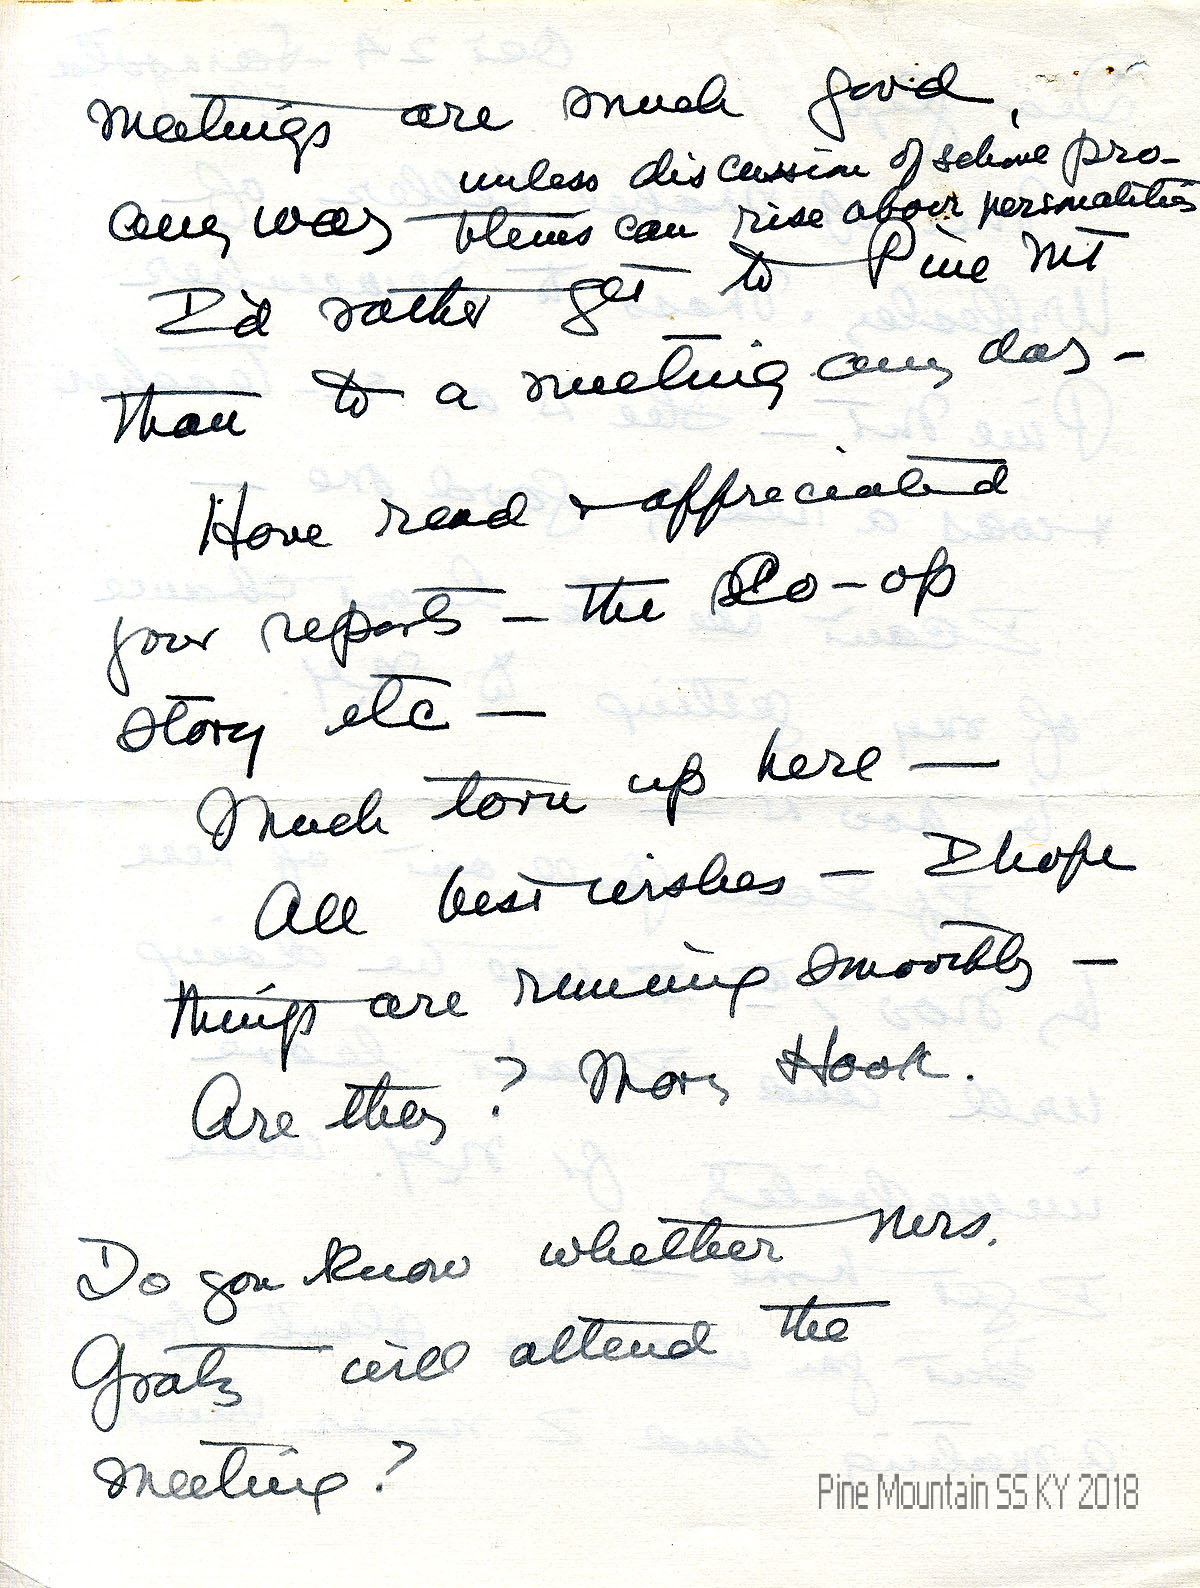 meetings are much good,
unless discussion of school pro-
any way blems can rise above personalities
I'd rather get to Pine Mt
than to a meeting any day -
Have read & appreciated
your reports - the Co-op
story etc -
Much torn up here -
All best wishes - I hope
things are running smoothly -
Are they? Mary Hook.
Do you know whether Mrs.
Gratz will attend the
meeting?
Pine Mountain SS KY 2018